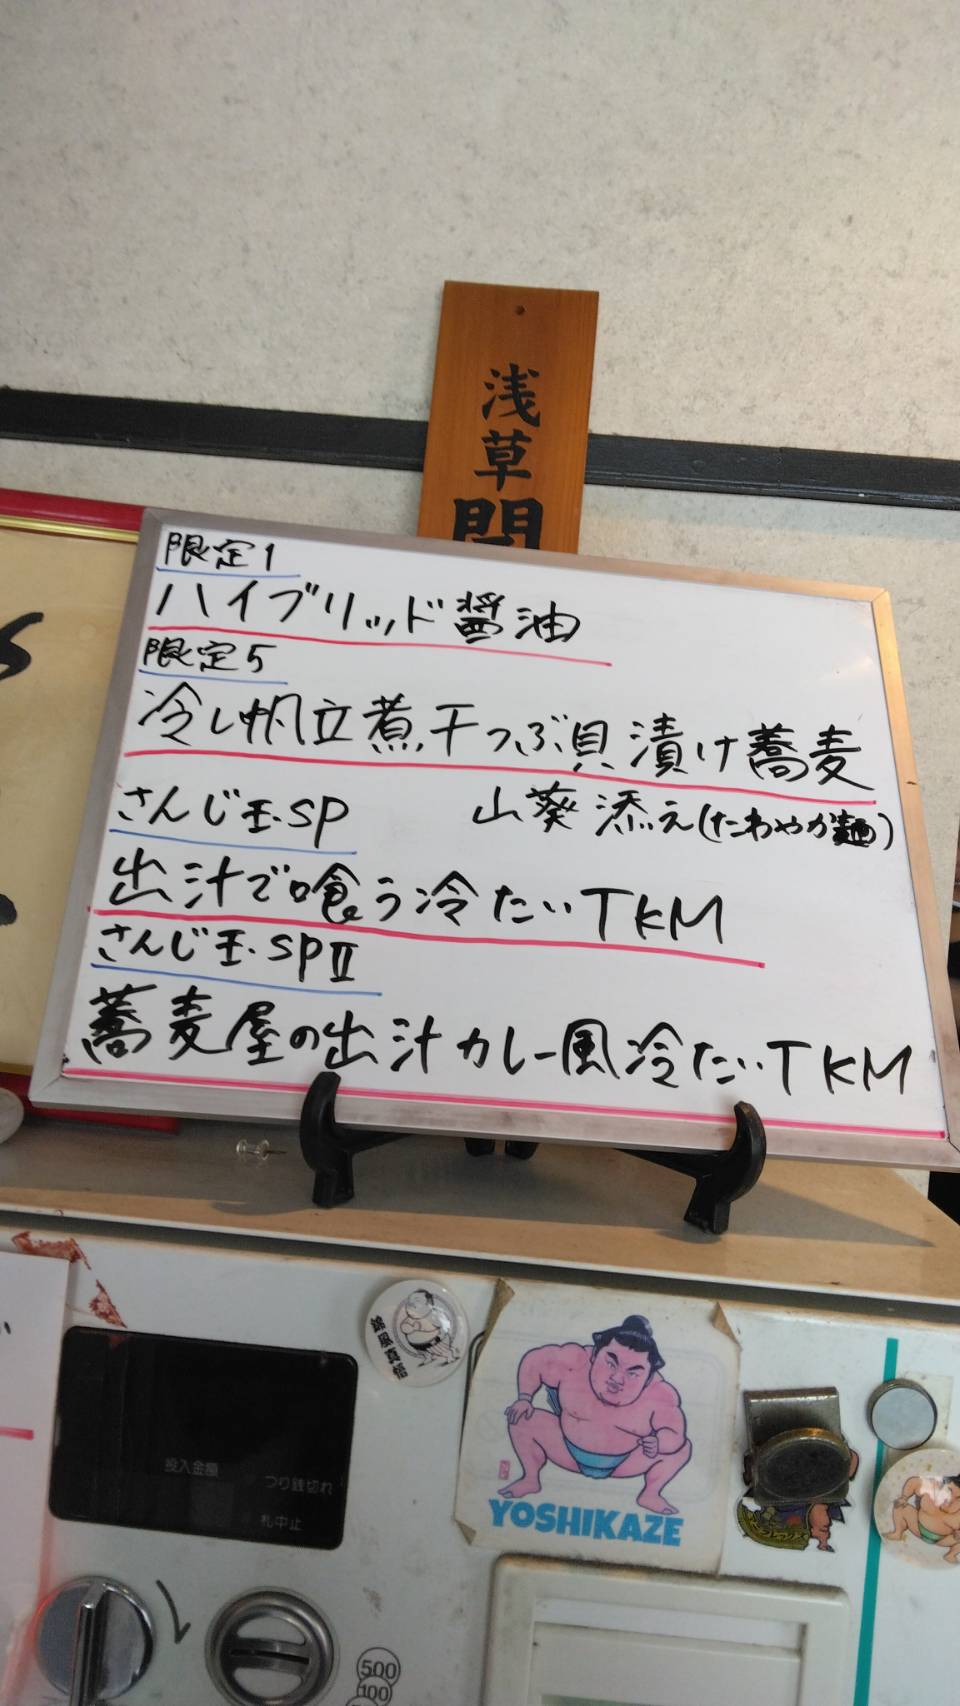 浅草開
限定1
ハイブリッド醤油
限定5
冷し帆立煮干つぶ貝漬け蕎麦
山葵添え(たわやか麺)
さんじ玉SP
出汁で喰う冷たいTKM
さんじ玉SPⅡ
蕎麦屋の出汁カレー風冷たいTKM
投入金額
つり銭切れ
札中止
YOSHIKAZE
500
100